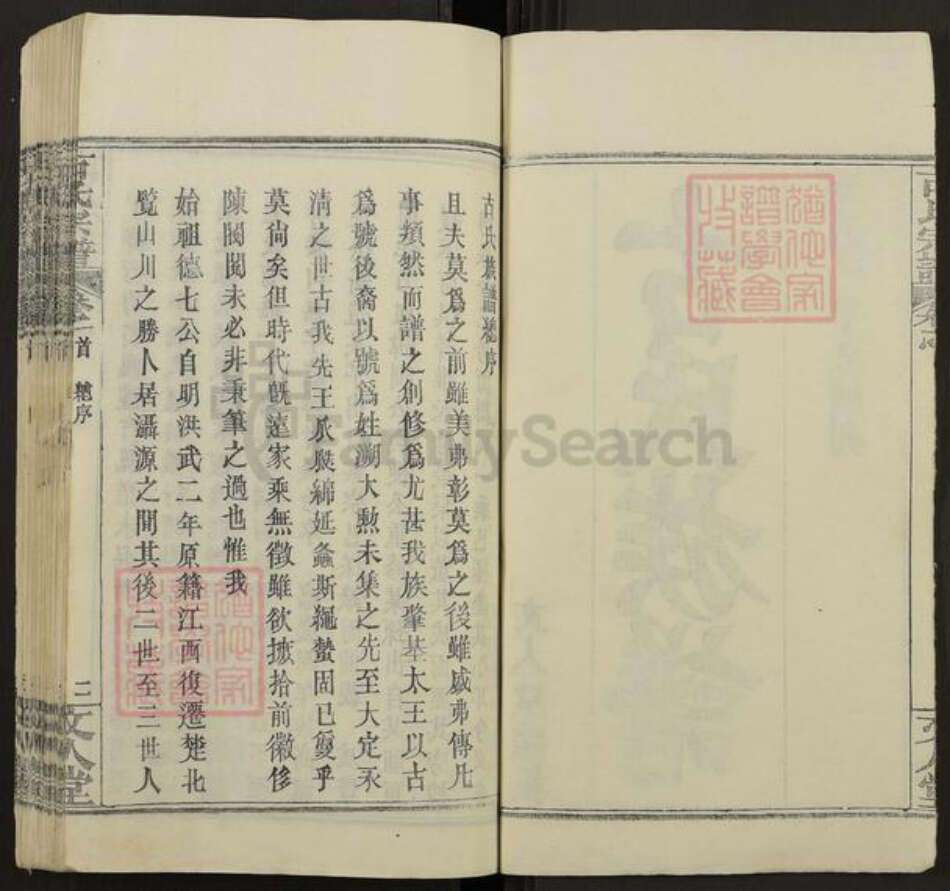 古氏族譜總序
且夫莫為之前雖美弗彰莫為之後雖盛弗傳凡
事類然而譜之創修為尤甚我族肇基太王以古
為號後裔以號為姓溯大勲未集之先至大定永
清之世古我先王瓜瓞綿延螽斯繩蟄固已敻乎
莫尚矣但時代旣遠家乘無徵雖欲摭拾前徽侈
陳閥閱未必非秉筆之過也惟我
始祖德七公自明洪武二年原籍江西復遷楚北
覧山川之勝卜居灄源之間其後二世至三世人
古氏宗譜 卷首 總序 二 文人堂
家
譜學會
收藏
FamilySearch